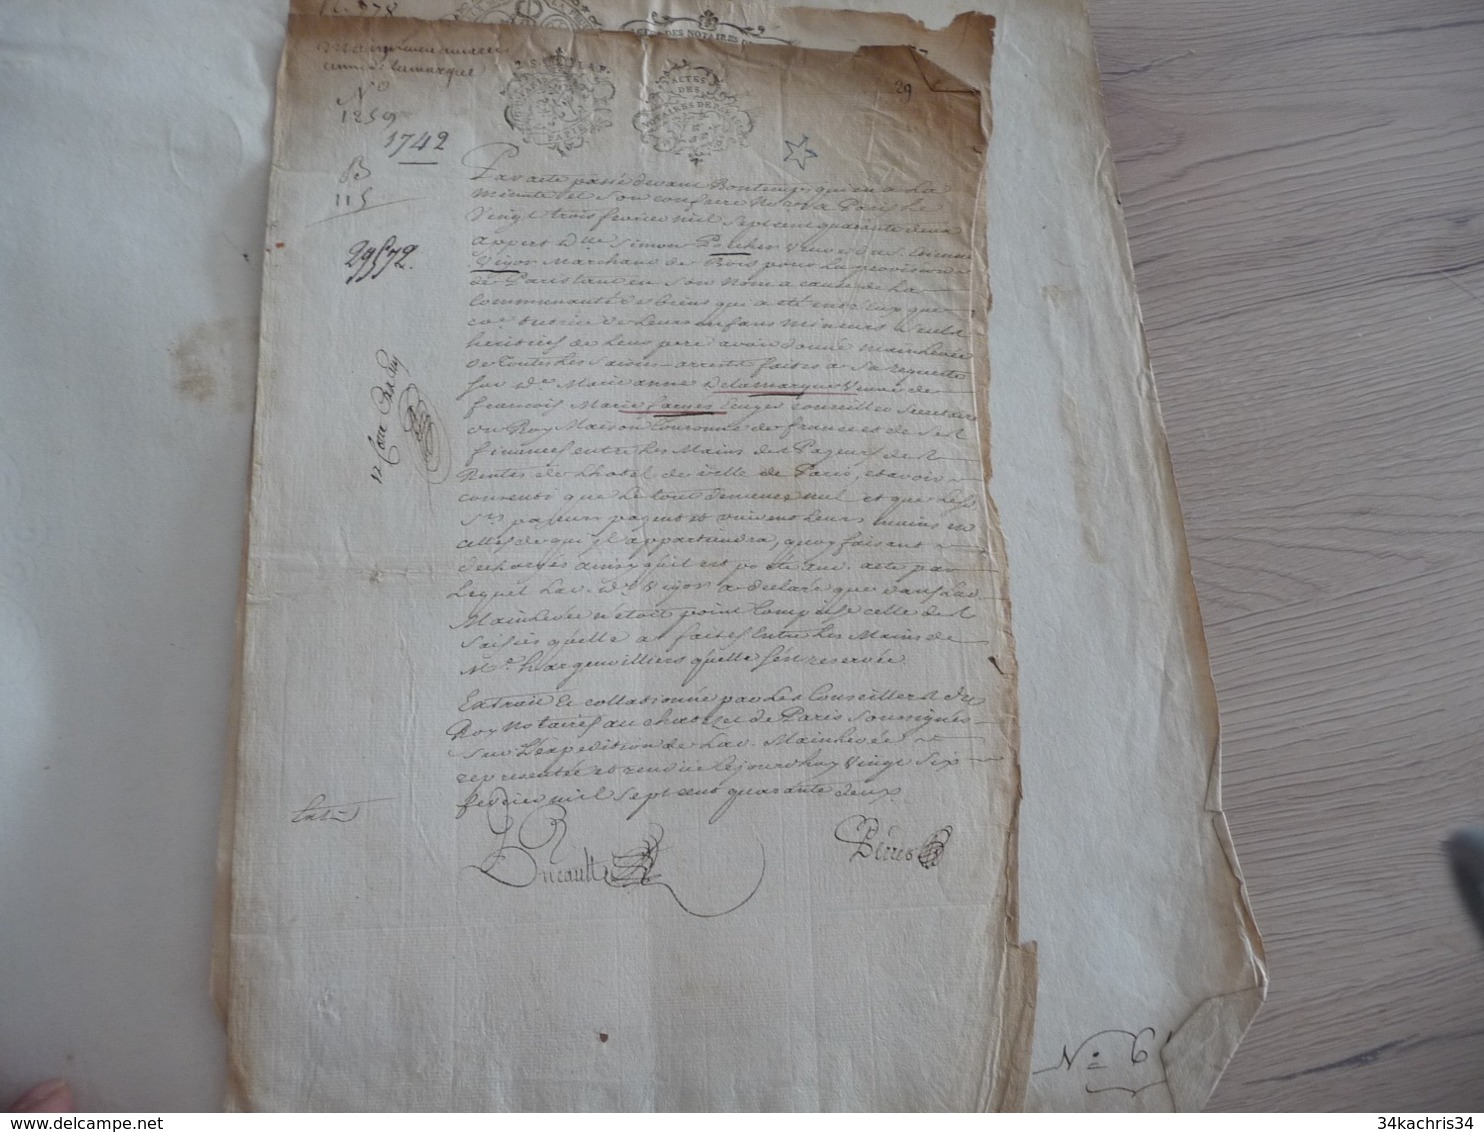 ACTES DES NOTAIRES D
Mainlevée
N°
1259
1742
B
115
29572.
29
ACTES
DES
PARIS
Par acte passé devant Bontemps qui en a La
Minute et Son confrere Nores a Paris Le
Vingt trois fevrier mil Sept cent quarante deux
appert Dlle Simonne Porcher Veuve du S. Etienne
Vigor Marchand de Bois pour La provision
de Paris tant en Son Nom a cause de La
Communauté des biens qui a été entr'eux que
co.e tutrice de Leurs enfans mineurs
heritiers de Leur pere avoir donné Mainlevée
de toutes Les Saisies-arrests faites a Sa requeste
Sur De Marie anne Delamarque Veuve de
francois Marie conseiller Secretaire
du Roy Maison Couronne de france et de Ses
finances entre Les Mains des Payeurs des
Rentes de Lhotel de ville de Paris, et avoir
consenti que Le tout demeure nul et que Les
Srs payeurs payent et vuident Leurs mains en
celles de qui il appartiendra, quoy faisant
dechargés ainsy qu'il est porté aud. acte par
Lequel Lad. De Vigor a declaré que dans Lad.
Mainlevée n'etoit point Comprise celle des
Saisies qu'elle a faites Entre Les Mains de
M. hargenvilliers qu'elle s'est reservée.
Extrait et collationné par Les Conseillers du
Roy Notaires au chatelet de Paris Soussignés
Sur L'expedition de Lad. Mainlevée
representée et rendue Cejourdhuy Vingt Six
fevrier mil Sept cent quarante deux
Perret
N= 6
34kachris34